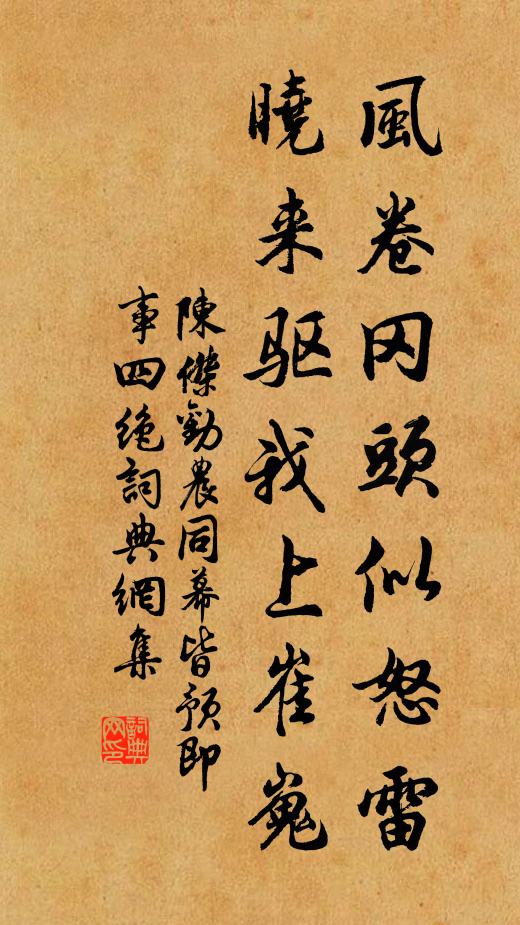 風卷冈頭似怒雷
曉来驱我上崔嵬
陳傑勸農同幕皆預即
事四绝詞典網集
詞典网印